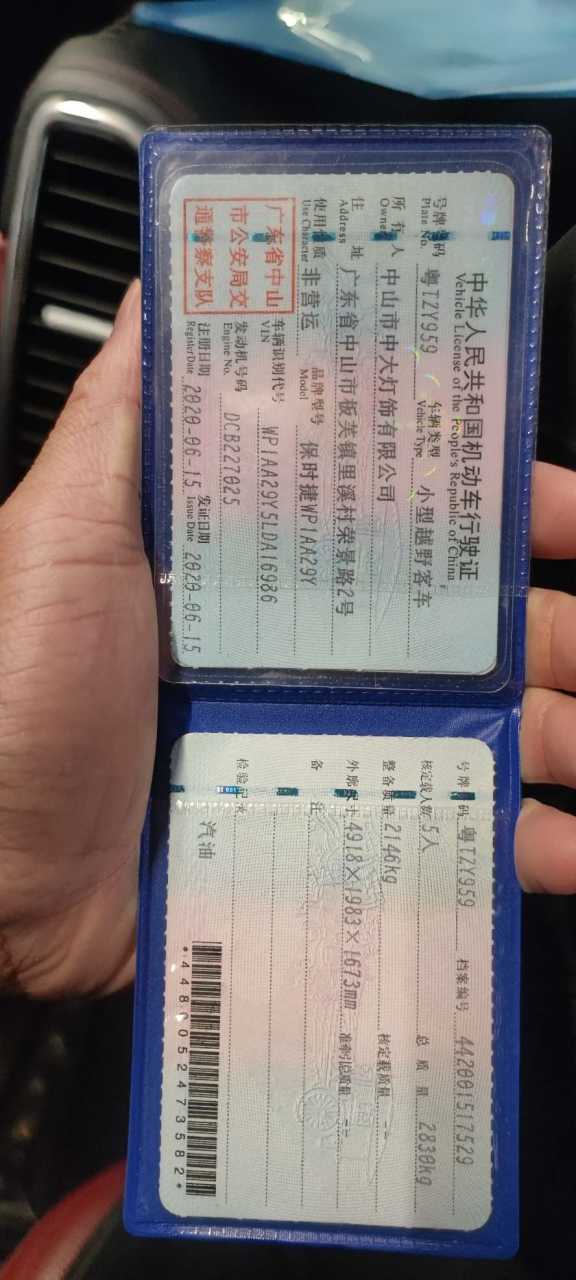 中华人民共和国机动车行驶证
Vehicle License of the People's Republic of China
号牌号码 粤TZY959 车辆类型 小型越野客车
Plate No. Vehicle Type
所有人 中山市中大灯饰有限公司
Owner
住址 广东省中山市板芙镇里溪村荣景路2号
Address
使用性质 非营运 品牌型号 保时捷WP1AA29Y
Use Character Model
广东省中山
市公安局交
通警察支队
车辆识别代号 WP1AA29Y5LDA16986
VIN
发动机号码 DCB227025
Engine No.
注册日期 2020-06-15 发证日期 2020-06-15
Register Date Issue Date
号牌号码 粤TZY959 档案编号 442001517529
核定载人数 5人 总质量 2830kg
整备质量 2146kg 核定载质量 --
外廓尺寸 4918×1983×1673mm 准牵引总质量 --
备注
检验记录
汽油
*4480052473582*